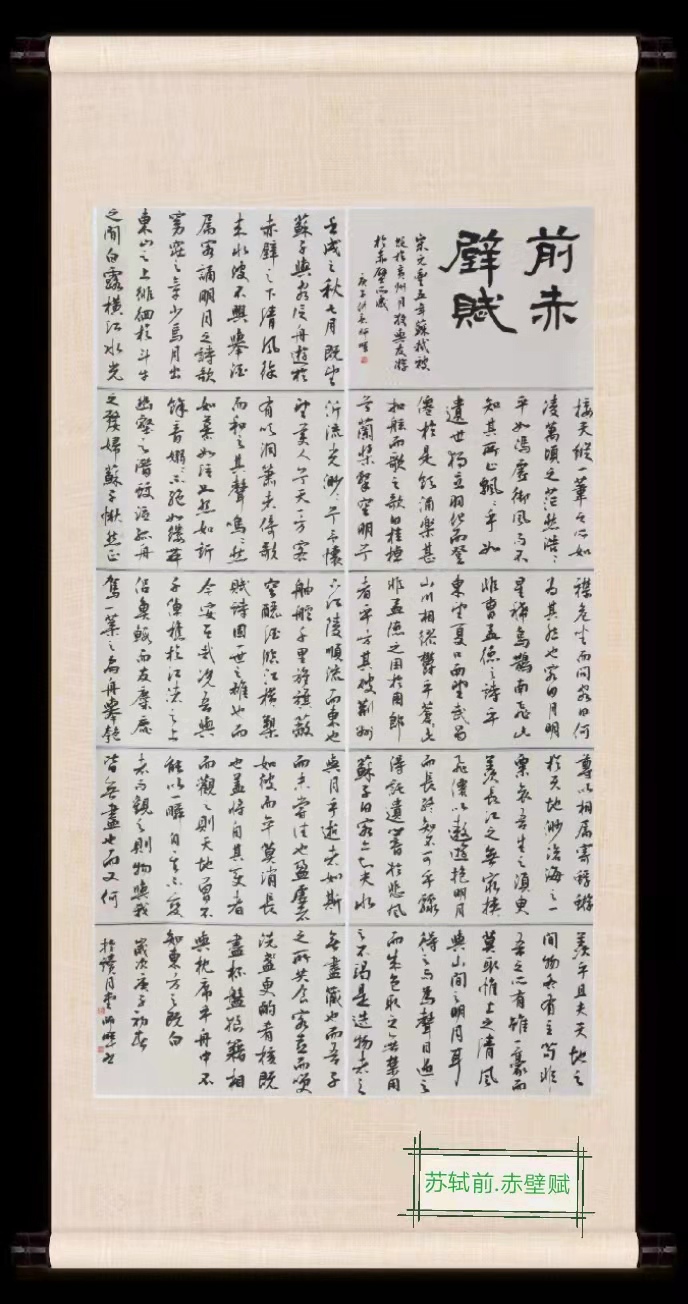 前赤
壁賦
宋元豐五年蘇軾被
貶於黃州月夜與友游
於赤壁而感
庚子
壬戌之秋七月既望
蘇子與客泛舟遊於
赤壁之下清風徐
來水波不興舉酒
属客誦明月之詩歌
窈窕之章少焉月出
東山之上徘徊於斗牛
之間白露橫江水光
接天縱一葦之所如
凌萬頃之茫然浩浩
乎如馮虛御風而不
知其所止飄飄乎如
遺世獨立羽化而登
僊於是飲酒樂甚
扣舷而歌之歌曰桂棹
兮蘭槳擊空明兮
泝流光渺渺兮予懷
望美人兮天一方客
有吹洞簫者倚歌
而和之其聲嗚嗚然
如慕如泣如怨如訴
餘音嫋嫋不絕如縷舞
幽壑之潛蛟泣孤舟
之嫠婦蘇子愀然正
襟危坐而問客曰何
為其然也客曰月明
星稀烏鵲南飛此
非曹孟德之詩乎
東望夏口西望武昌
山川相繆鬱乎蒼此
非孟德之困於周郎
者乎方其破荊州
下江陵順流而東也
舳艫千里旌旗蔽
空釃酒臨江橫槊
賦詩固一世之雄也而
今安在哉況吾與
子漁樵於江渚之上
侣魚鰕而友麋鹿
駕一葉之扁舟舉匏
尊以相属寄蜉蝣
於天地渺滄海之一
粟哀吾生之須臾
羨長江之無窮挾
飛僊以遨遊抱明月
而長終知不可乎驟
得託遺響於悲風
蘇子曰客亦知夫水
與月乎逝者如斯
而未嘗往也盈虛者
如彼而卒莫消長
也蓋將自其變者
而觀之則天地曾不
能以一瞬自其不變
者而觀之則物與我
皆無盡也而又何
羨乎且夫天地之
間物各有主苟非
吾之所有雖一毫而
莫取惟江上之清風
與山間之明月耳
得之而為聲目遇之
而成色取之無禁用
之不竭是造物者之
無盡藏也而吾子
之所共食客喜而笑
洗盞更酌肴核既
盡杯盤狼籍相
與枕席乎舟中不
知東方之既白
歲次庚子初春
於讀月堂
苏轼前.赤壁赋